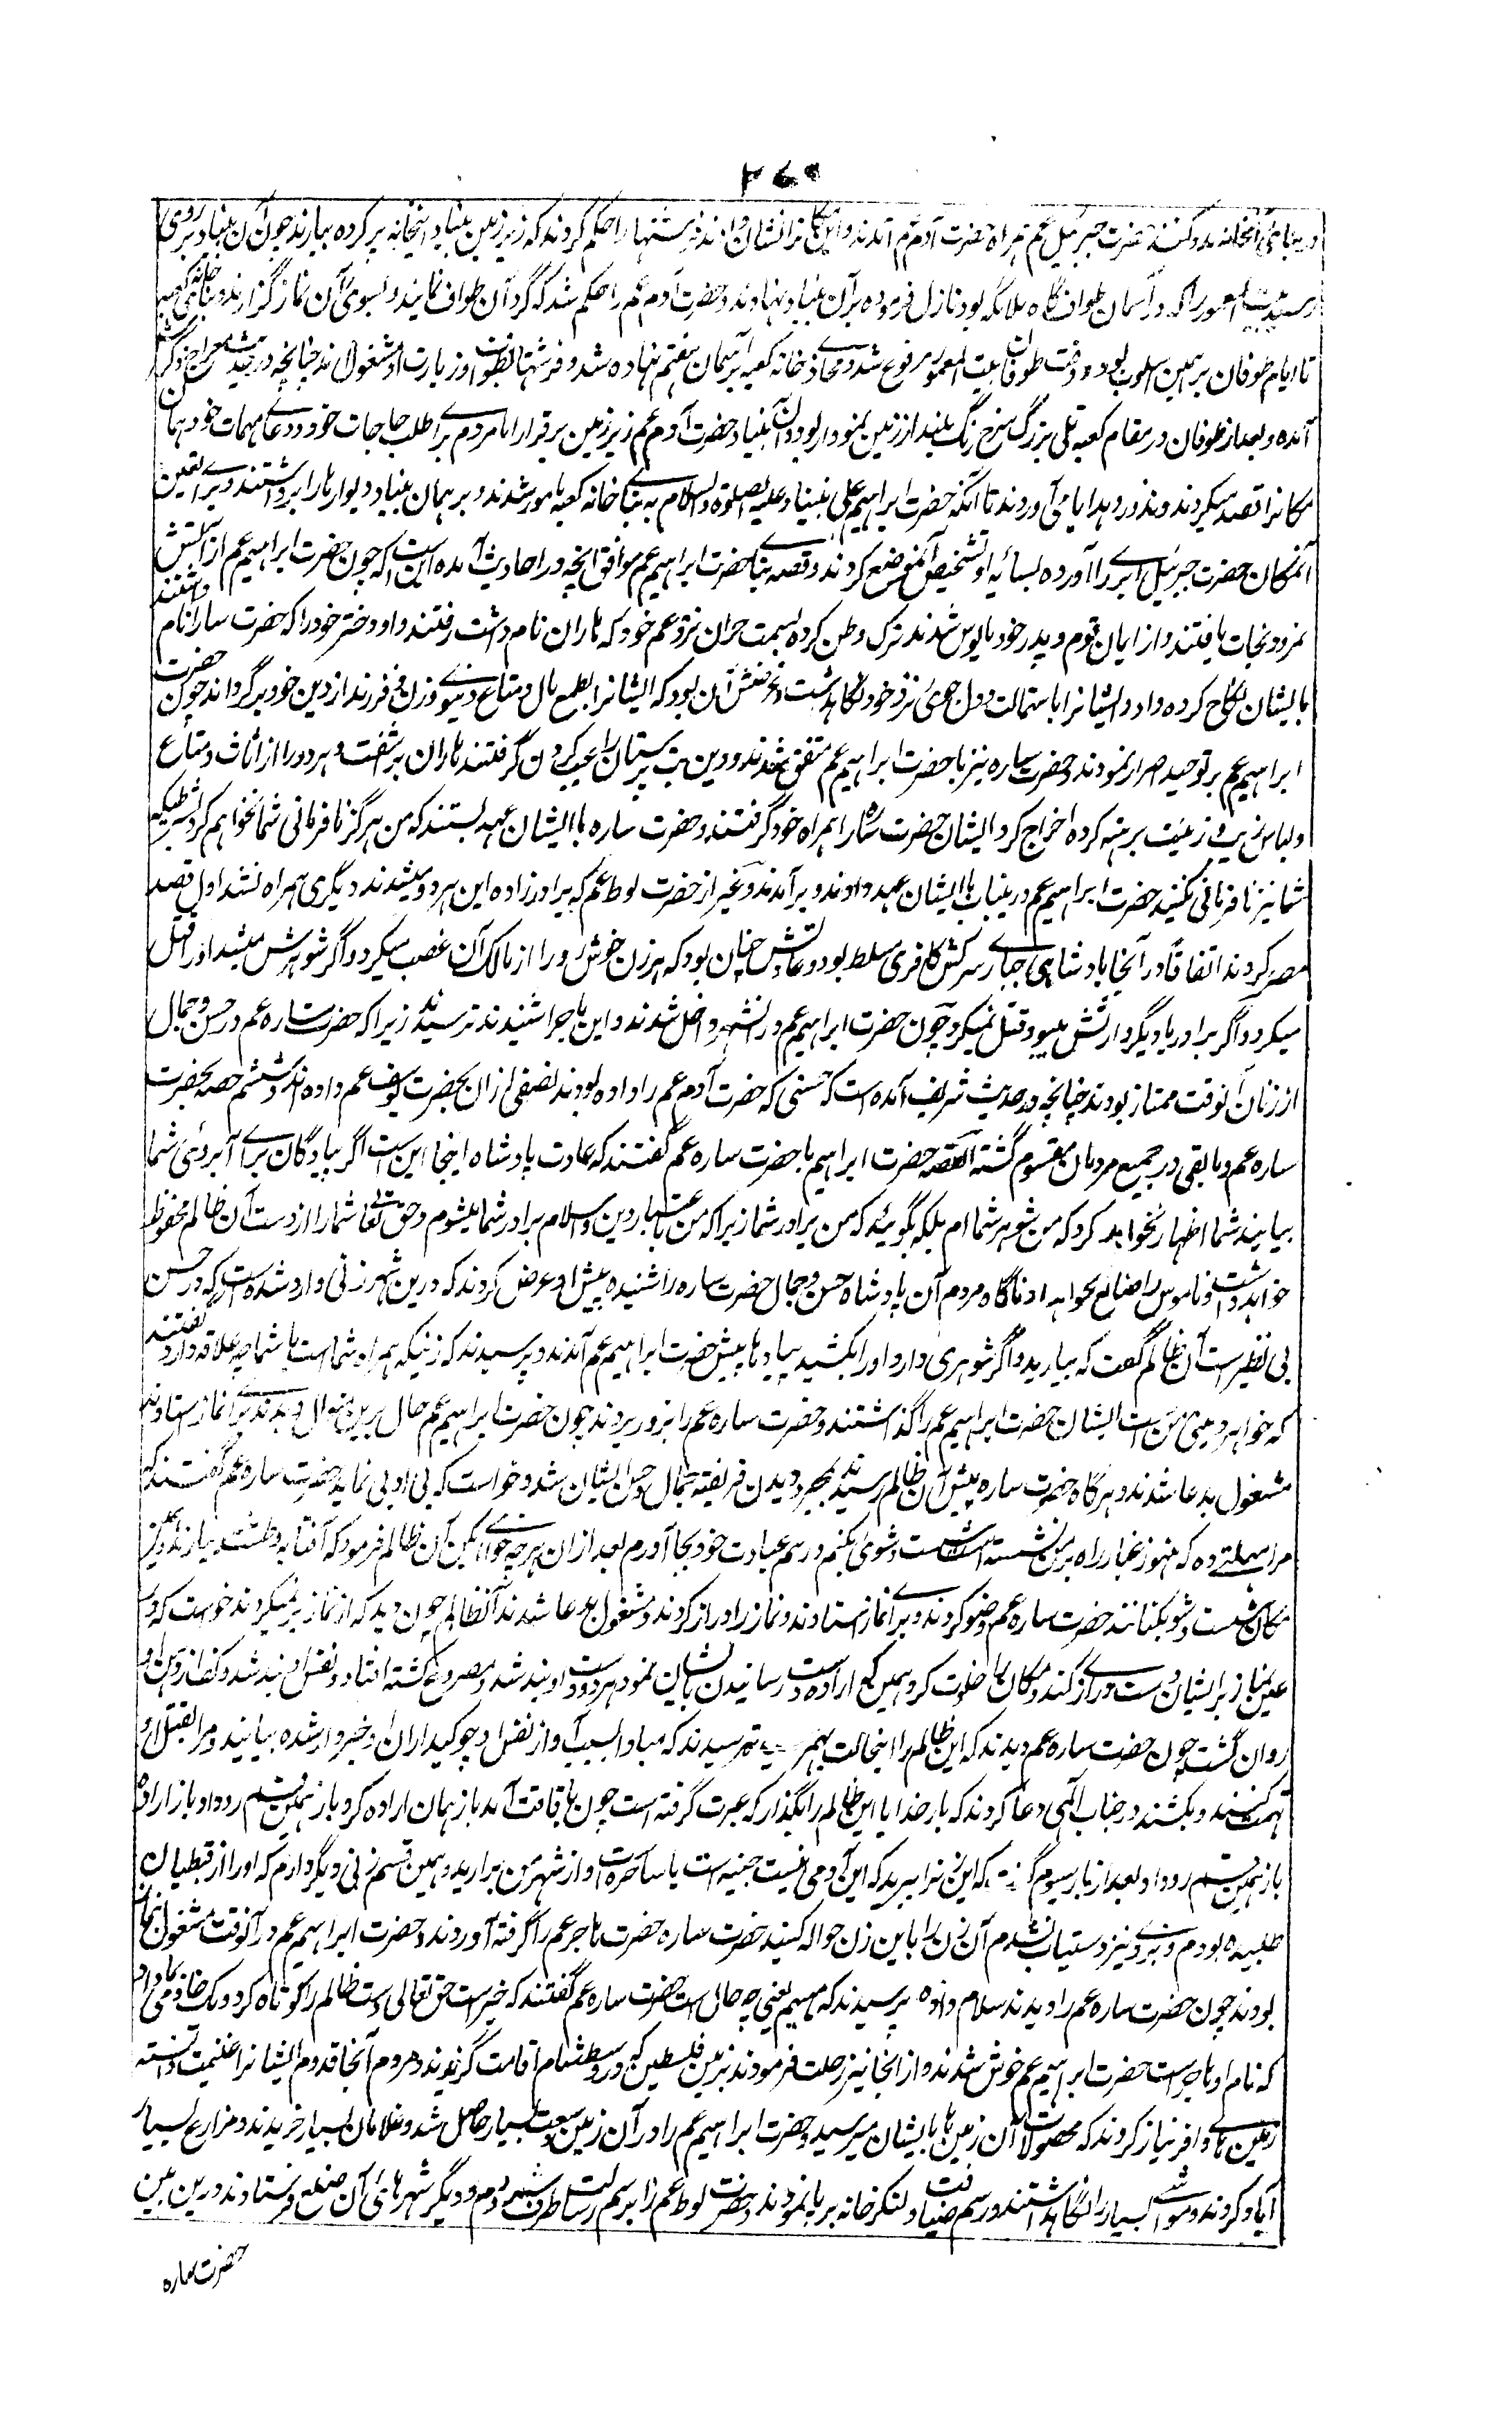 ۳۷۰
در بنای این خانه مدد کنند حضرت جبرئیل عم همراه حضرت آدم عم آمدند و این مکان را نشان دادند و فرشتها را حکم کردند که زیر زمین بنیاد این خانه پر کرده بیارند چون آن بنیاد بر روی
رسید بیت المعمور را که در آسمان طواف گاه ملائکه بود نازل فرموده بر آن بنیاد نهادند و حضرت آدم عم را حکم شد که گرد آن طواف نمایند و بسوی آن نماز گزارند و بنای خانه کعبه
تا ایام طوفان بر همین اسلوب بود و وقت طوفان بیت المعمور مرفوع شد و محاذی خانه کعبه بر آسمان هفتم نهاده شد و فرشتها بطواف و زیارت او مشغول اند چنانچه در حدیث معراج ذکرش
آمده و بعد از طوفان در مقام کعبه تلی بزرگ سرخ رنگ بلند از زمین نمودار بود و آن بنیاد حضرت آدم عم زیر زمین برقرار اما مردم برای طلب حاجات خود و دعای مهمات خود همان
مکان را قصد میکردند و نذور و هدایا می آوردند تا آنکه حضرت ابراهیم علی نبینا و علیه الصلوة والسلام به بنای خانه کعبه مامور شدند و بر همان بنیاد دیوارها را برداشتند و برای تعین
آنمکان حضرت جبرئیل ابری را آورده بسایه او تشخیص آنموضع کردند و قصه بنای حضرت ابراهیم عم موافق آنچه در احادیث آمده این است که چون حضرت ابراهیم عم از آتش
نمرود نجات یافتند و از ایمان قوم و پدر خود مایوس شدند ترک وطن کرده بسمت حران نزد عم خود که هاران نام داشت رفتند و او دختر خود را که حضرت سارا نام داشتند
بایشان نکاح کرده داد و ایشانرا باستمالت و دل جوئی نزد خود نگاهداشت و غرضش آن بود که ایشانرا بطمع مال و متاع دنیوی و زن و فرزند از دین خود برگرداند چون حضرت
ابراهیم عم بر توحید اصرار نمودند و حضرت ساره نیز با حضرت ابراهیم عم متفق شدند و دین بت پرستان را عیب کردن گرفتند هاران برآشفت و هر دو را از اثاث و متاع
و لباس زیب و زینت برهنه کرده اخراج کرد ایشان حضرت ساره را همراه خود گرفتند و حضرت ساره با ایشان عهد بستند که من هرگز نافرمانی شما نخواهم کرد بشرطیکه
شما نیز نافرمانی نکنید حضرت ابراهیم عم درینباب با ایشان عهد دادند و برآمدند و غیر از حضرت لوط عم که برادرزاده این هر دو میشدند دیگری همراه نشد اول قصد
مصر کردند اتفاقا در آنجا بادشاهی جباری سرکش کافری مسلط بود و عادتش چنان بود که هر زن خوش رو را از مالک آن غصب میکرد و اگر شوهرش میشد او را قتل
میکرد و اگر برادر یا دیگر وارثش میبود قتل نمیکرد چون حضرت ابراهیم عم در انشهر داخل شدند و این ماجرا شنیدند ترسیدند زیرا که حضرت ساره عم در حسن و جمال
از زنان آنوقت ممتاز بودند چنانچه در حدیث شریف آمده است که حسنی که حضرت آدم عم را داده بودند نصفی از ان بحضرت یوسف عم داده اند و ششم حصه بحضرت
ساره عم و مابقی در جمیع مردمان مقسوم گشته القصه حضرت ابراهیم با حضرت ساره عم گفتند که عادت پادشاه اینجا این است اگر پیادگان برای آبروئی شما
بیایند شما اظهار نخواهید کرد که من شوهر شما ام بلکه بگوئید که من برادر شما زیرا که من باعتبار دین و اسلام برادر شما میشوم و حق تعالی شما را از دست آن ظالم محفوظ
خواهد داشت و ناموس را ضائع نخواهد داد ناگاه مردم آن پادشاه حسن و جمال حضرت ساره را شنیده پیش او عرض کردند که درین شهر زنی وارد شده است که در حسن
بی نظیر است آن ظالم گفت که بیارید و اگر شوهری دارد او را بکشید پیادها پیش حضرت ابراهیم عم آمدند و پرسیدند که زنیکه همراه شما است با شما چه علاقه دارد گفتند
که خواهر دینی من است ایشان حضرت ابراهیم عم را گذاشتند و حضرت ساره عم را بزور بردند چون حضرت ابراهیم عم حال برین منوال دیدند برای نماز ستادند
مشغول بدعا شدند و هرگاه حضرت ساره پیش آن ظالم رسیدند بمجرد دیدن فریفته جمال و حسن ایشان شد و خواست که بی ادبی نماید حضرت ساره عم گفتند که
مرا مهلتی ده که هنوز غبار راه بر من نشسته است شست و شوی بکنم و رسم عبادت خود بجا آورم بعد از ان هرچه خواهی بکن آن ظالم فرمود که آفتابه و طشت بیارند و در
مکان شست و شو بکنانند حضرت ساره عم وضو کردند و برای نماز ستادند و نماز را دراز کردند و مشغول بدعا شدند آنظالم چون دید که از نماز بر نمیگردند خواست که در
عین نماز بر ایشان دست درازی کند و مکان را خلوت کرد همین که اراده دست رسانیدن بایشان نمود هر دو دست او بند شد و مصروع گشته افتاد و نفس او بند شد و کف از دهن او
روان گشت چون حضرت ساره عم دیدند که این ظالم را اینحالت بهم رسید ترسیدند که مبادا بسبب آواز نفس او چوکیداران او خبردار شده بیایند و مرا بقتل او
تهمت کنند و بکشند در جناب الهی دعا کردند که بار خدایا این ظالم را بگذار که عبرت گرفته است چون بافاقت آمد باز همان اراده کرد باز همین قسم رو داد باز اراده
باز همین قسم رو داد بعد از بار سیوم گفت که این زن را ببرید که این آدمی نیست جنیه است یا ساحره است او از شهر من برارید و همین قسم زنی دیگر دارم که او را از قبطیان
طلبیده بودم و برو نیز دستیاب نشدم آن زن را باین زن حواله کنید حضرت ساره حضرت هاجر عم را گرفته آوردند و حضرت ابراهیم عم در آنوقت مشغول نماز
بودند چون حضرت ساره عم را دیدند سلام داده پرسیدند که مهیم یعنی چه حال است حضرت ساره عم گفتند که خیر است حق تعالی دست ظالم را کوتاه کرد و یک خادمه ما داد
که نام او هاجر است حضرت ابراهیم عم خوش شدند و از انجا نیز رحلت فرمودند بزمین فلسطین که در وسط شام اقامت گزیدند و مردم آنجا قدوم ایشانرا غنیمت دانسته
زمین های وافر نیاز کردند که محصولات آن زمین ها بایشان میرسید و حضرت ابراهیم عم را در آن زمین وسعت بسیار حاصل شد و غلامان بسیار خریدند و مزارع بسیار
آباد کردند و مواشی بسیار را نگاهداشتند و رسم ضیافت و لنگرخانه برپا نمودند و حضرت لوط عم را برسم رسالت طرف شهر سدوم و دیگر شهرهای آن ضلع فرستادند درین بین
حضرت ساره